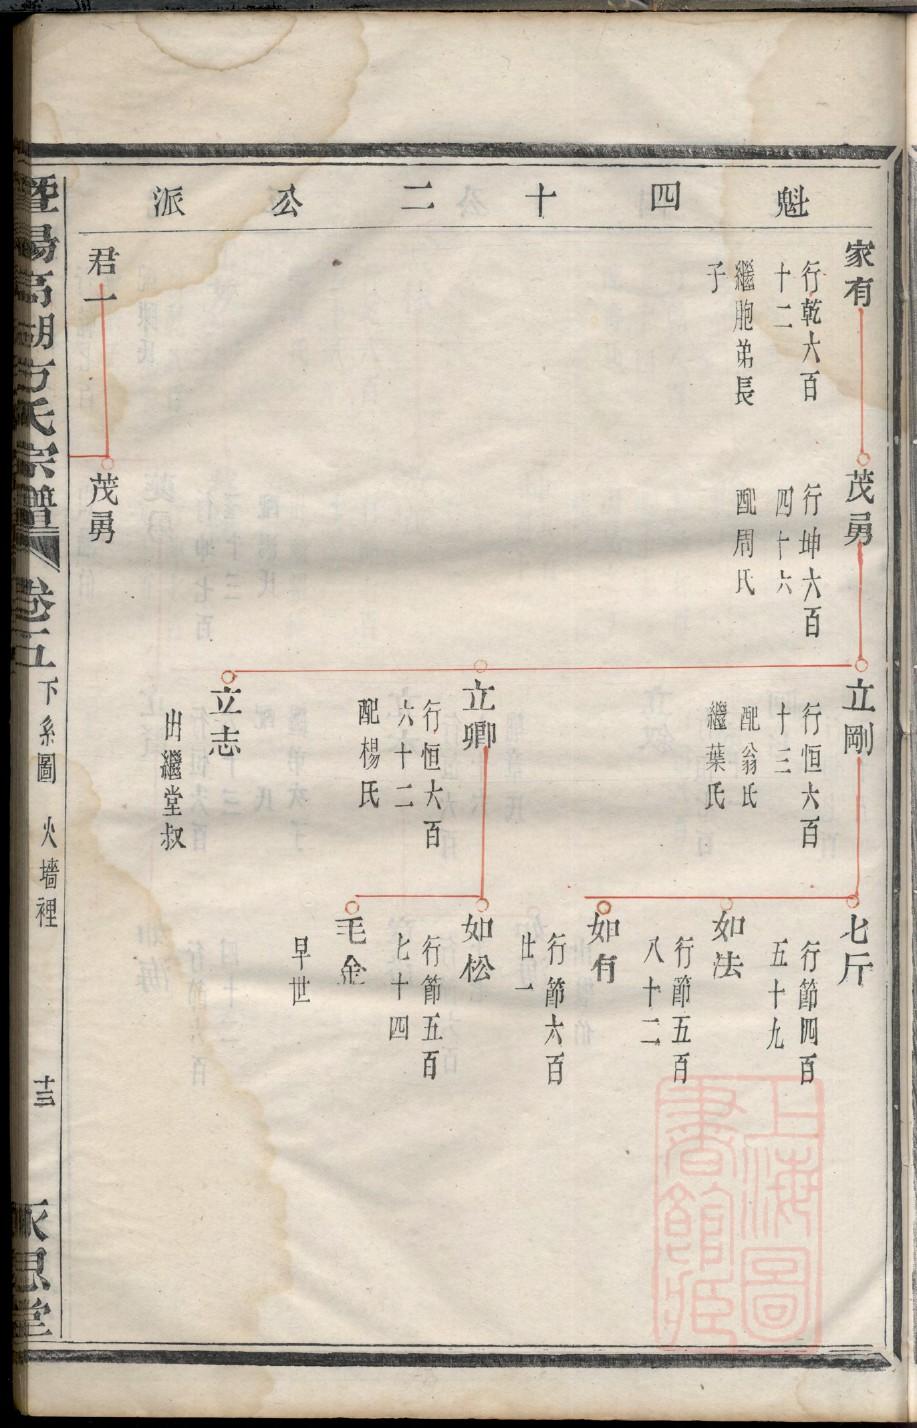 魁四十二公派
家有
行乾六百
十二
繼胞弟長
子
茂勇
行坤六百
四十六
配周氏
立剛
行恒六百
十三
配翁氏
繼葉氏
七斤
行節四百
五十九
如法
行節五百
八十二
如有
行節六百
廿一
立卿
行恒六百
六十二
配楊氏
如松
行節五百
七十四
毛金
早世
立志
出繼堂叔
君一
茂勇
暨陽高湖方氏宗譜
卷二五
下系圖
火墻裡
十三
永思堂
上海圖
書館藏